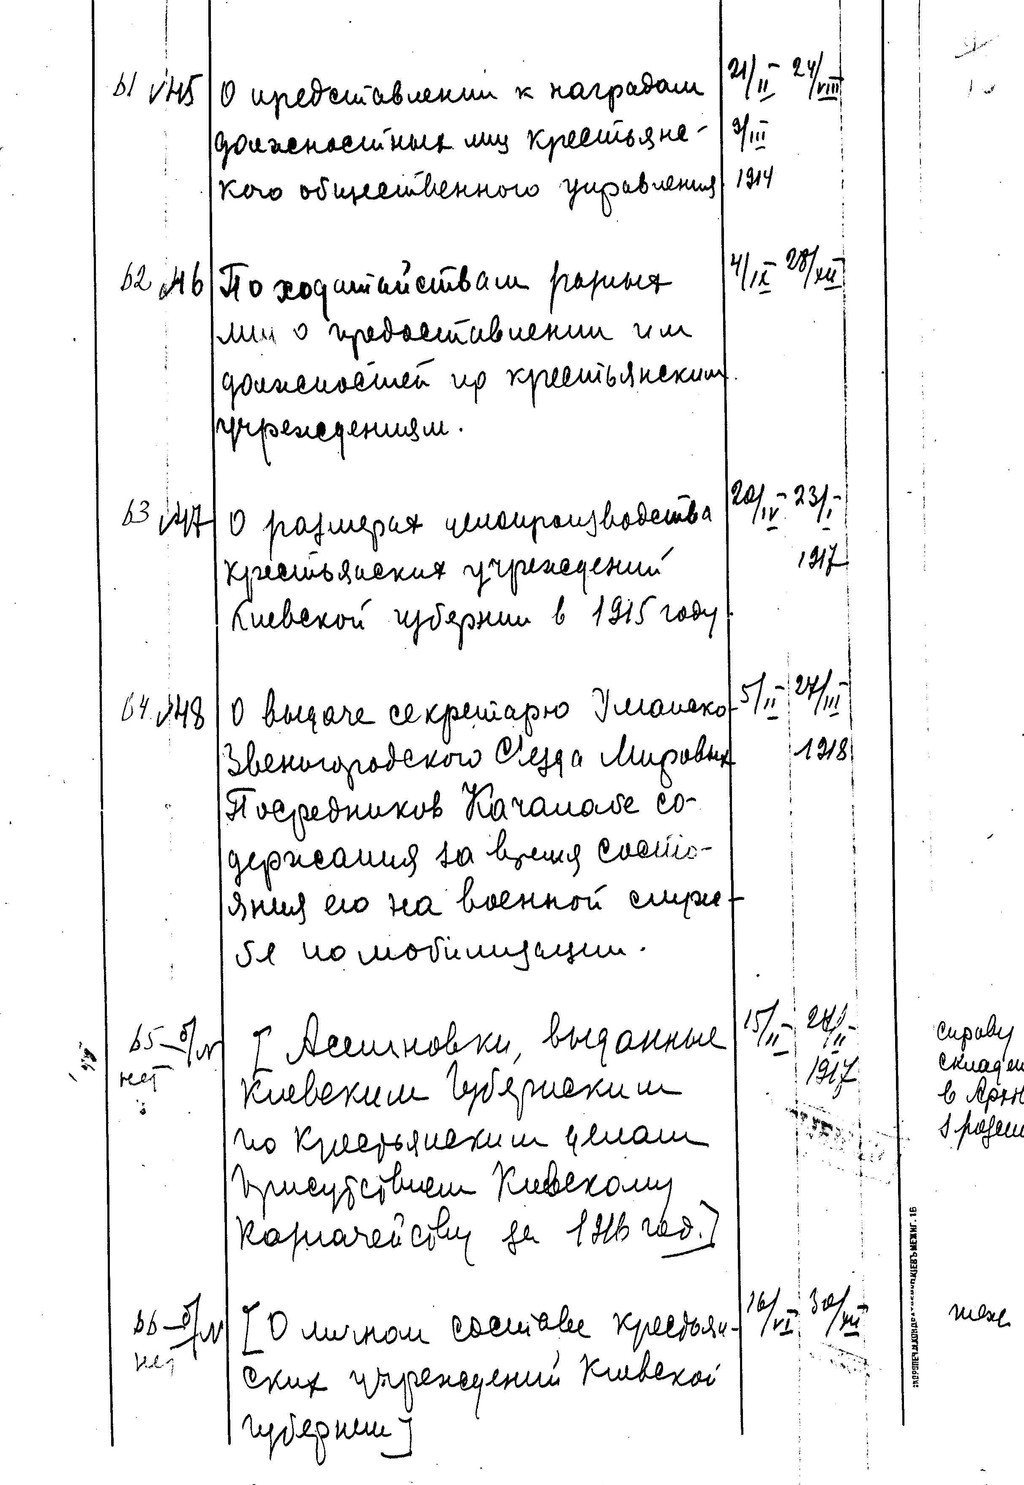 61 √45 О представлении к наградам 21/II 24/VIII
должностных лиц крестьянс- 9/III
кого общественного управления 1914
62 √46 По ходатайствам разных 4/IX 28/XII
лиц о предоставлении им
должностей по крестьянским
учреждениям.
63 √47 О размерах делопроизводства 20/IV 23/I
крестьянских учреждений 1917
Киевской губернии в 1915 году.
64 √48 О выдаче секретарю Уманско- 5/II 27/III
Звенигородского Съезда Мировых 1918
Посредников Качалабе со-
держания за время состо-
яния его на военной служ-
бе по мобилизации.
65 б/N [Ассигновки, выданные 15/II справу
нет Киевским Губернским 1917 складен
по крестьянским делам в Архи
Присутствием Киевскому
Казначейству за 1916 год.]
66 б/N [О личном составе крестьян- 16/VI 30/XII теж
нет ских учреждений Киевской
губернии]